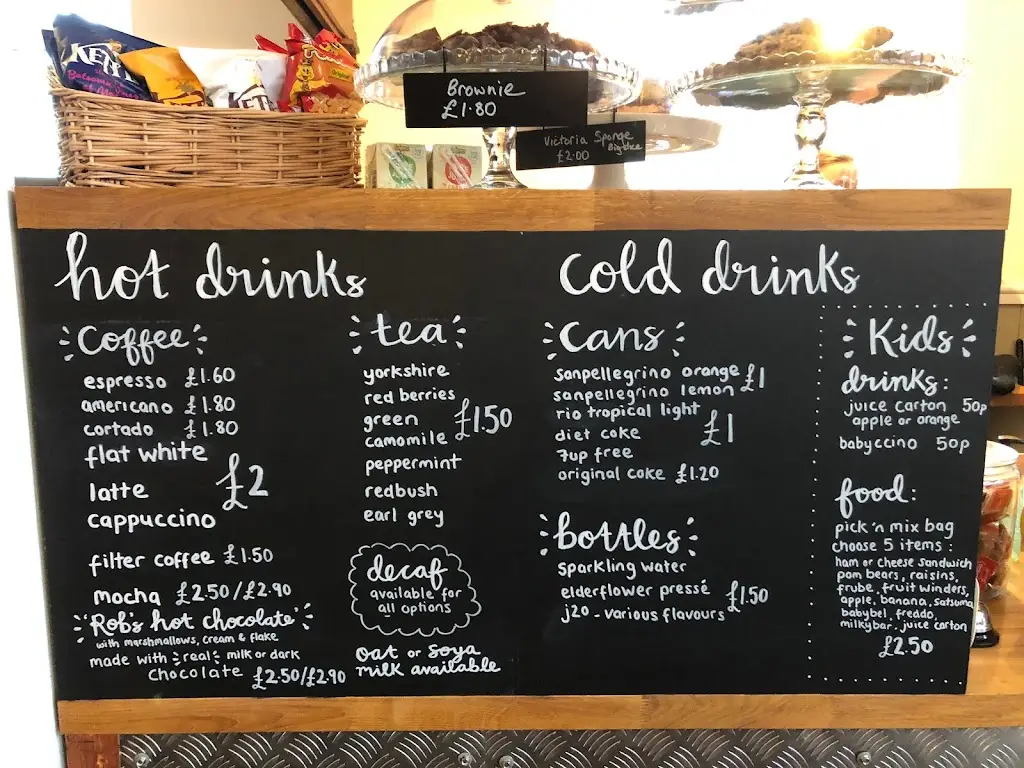 KETT
Brownie
£1.80
Victoria Sponge
Big slice
£2.00
hot drinks
Coffee
espresso £1.60
americano £1.80
cortado £1.80
flat white
latte
cappuccino
£2
filter coffee £1.50
mocha £2.50/£2.90
Rob's hot chocolate
with marshmallows, cream & flake
made with real milk or dark
chocolate £2.50/£2.90
tea
yorkshire
red berries
green
camomile
peppermint
redbush
earl grey
£1.50
decaf
available for
all options
oat or soya
milk available
cold drinks
Cans
sanpellegrino orange
sanpellegrino lemon
£1
rio tropical light
diet coke
7up free
£1
original coke £1.20
bottles
sparkling water
elderflower pressé
j2o - various flavours
£1.50
Kids
drinks:
juice carton 50p
apple or orange
babyccino 50p
food:
pick 'n mix bag
choose 5 items:
ham or cheese sandwich
pom bears, raisins,
frube, fruit winders,
apple, banana, satsuma
babybel, freddo,
milkybar, juice carton
£2.50